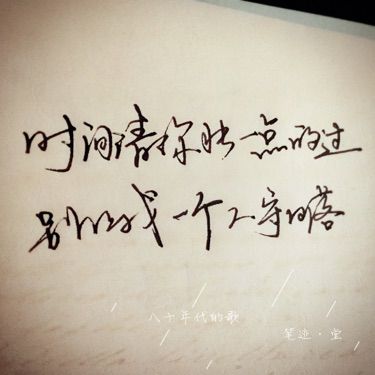 时间请你快一点的过
别让我一个人守落
八十年代的歌
笔迹·堂